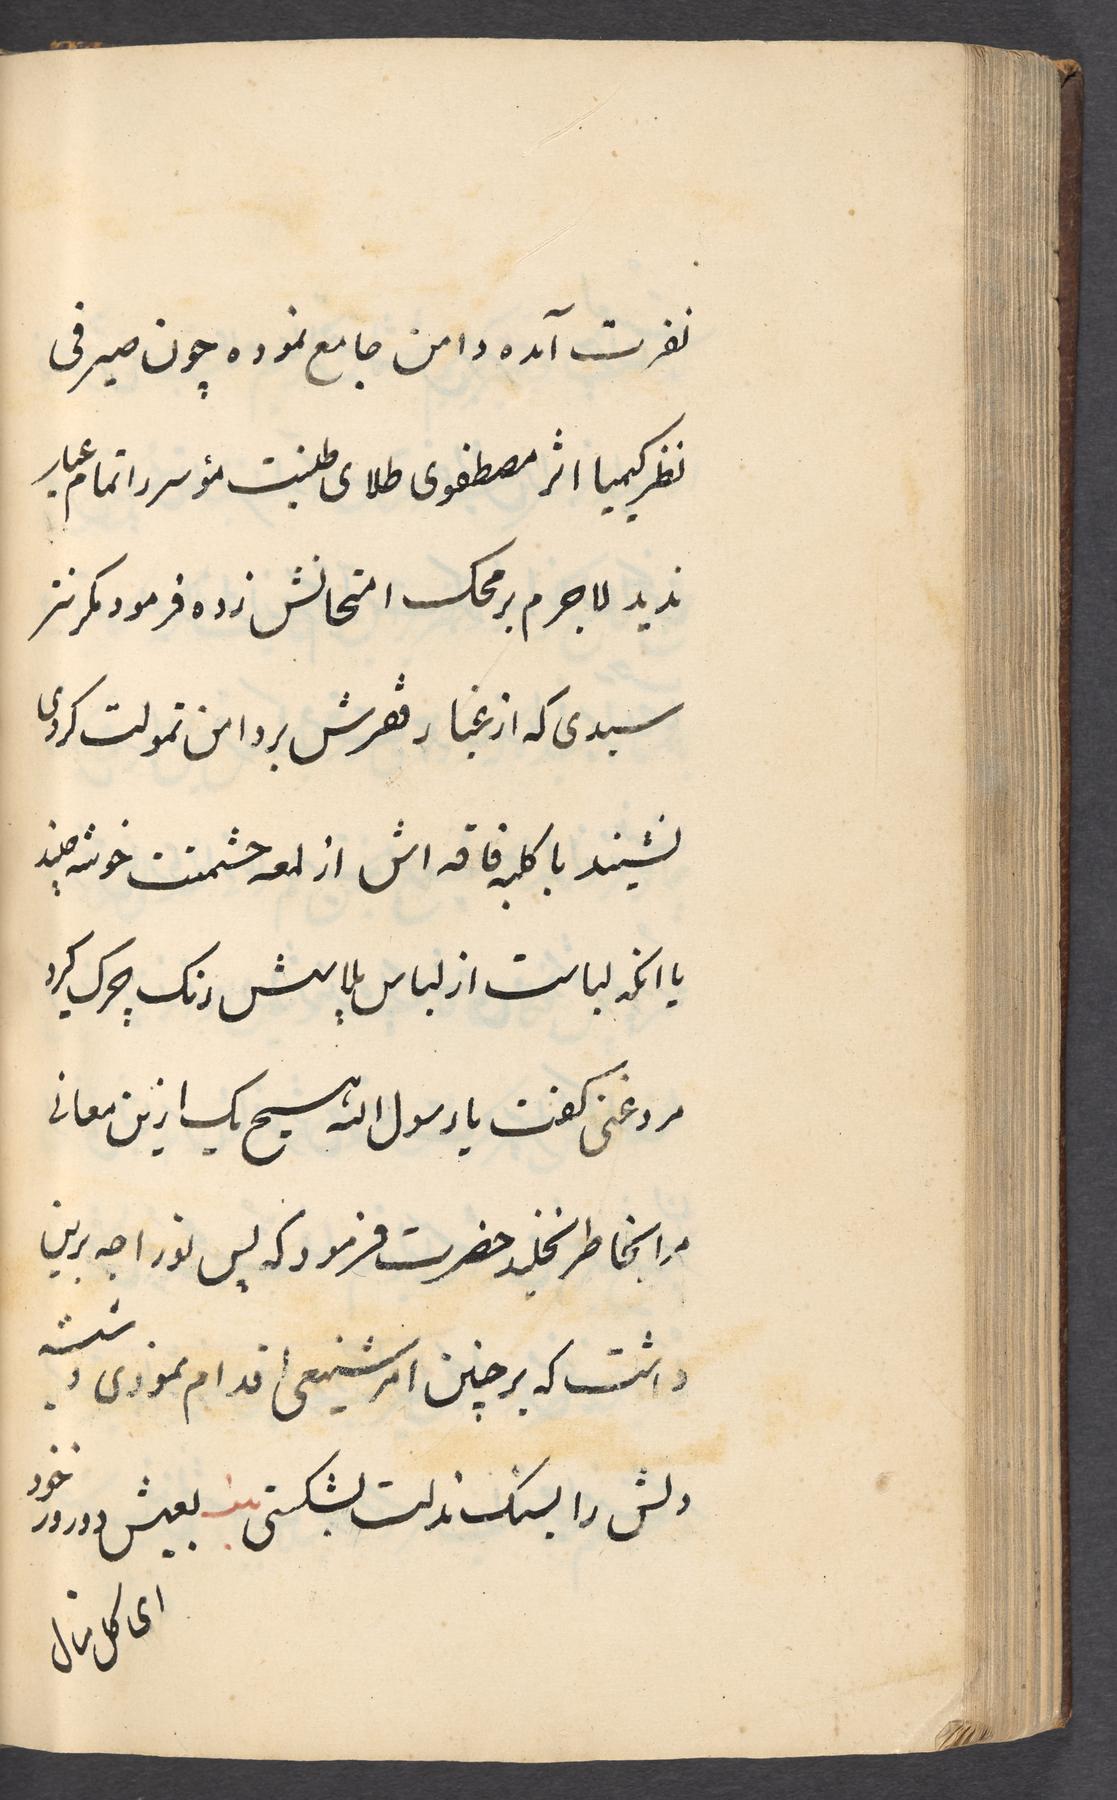 نفرت آمده دامن جامع نموده چون صیرفی
نظر کیمیا اثر مصطفوی طلای طینت مؤسر را تمام عیار
ندید لاجرم بر محک امتحانش زده فرمود مکر تتر
سیدی که از غبار فقرش بر دامن تمولت کردی
نشیند یا کلبه فاقه اش از لمعه حشمتت خوشه چیند
یا انکه لباست از لباس پلاسش رنک چرک کیرد
مرد غنی کفت یا رسول الله هیچ یک ازین معانی
مرا بخاطر نخلید حضرت فرمود که پس تو را چه برین
داشت که بر چنین امر شنیعی اقدام نمودی و شیشه
دلش را بسنک مذلت بشکستی بیت بعیش دو روز خود
ای کل منال